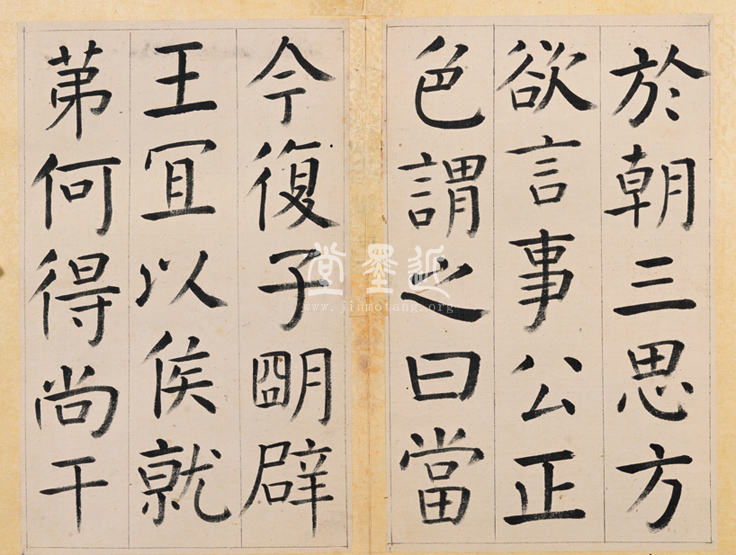 於朝三思方
欲言事公正
色謂之曰當
今復子朙辟
王宜以侯就
苐何得尚干
近墨堂
www.jinmotang.org